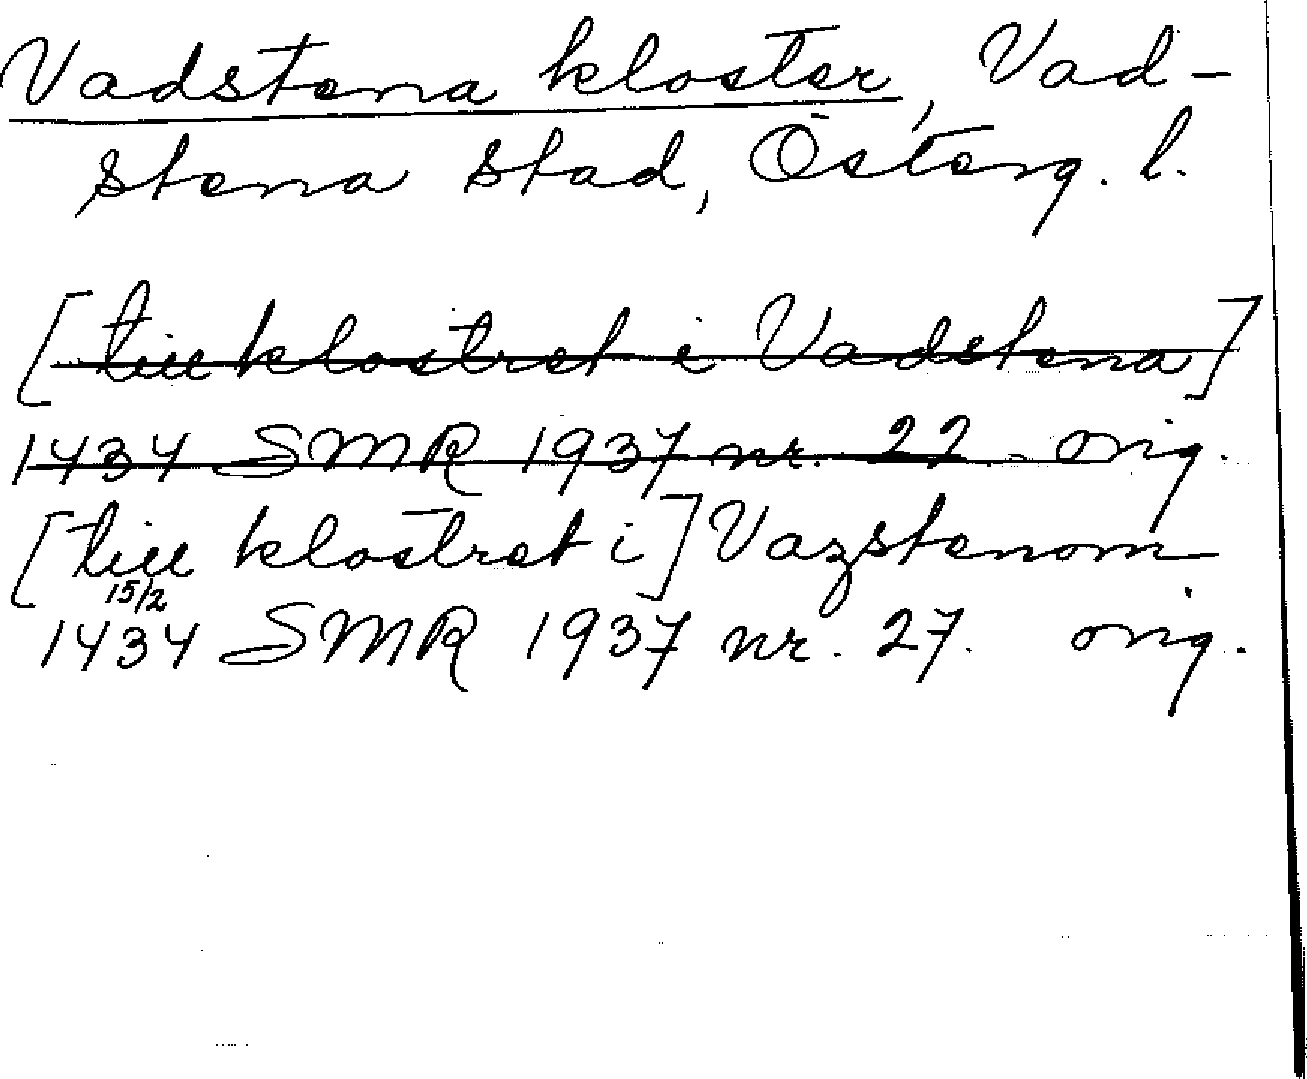 Vadstena kloster, Vad-
stena stad, Österg. l.
[till klostret i Vadstena]
1434 SMR 1937 nr. 22. orig.
[till klostret i] Vazstenom
15/2
1434 SMR 1937 nr. 27. orig.